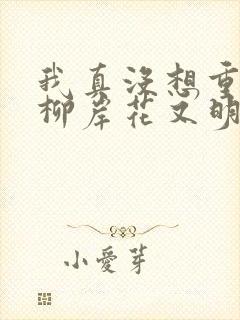 我真没想重
柳岸花又明
小爱芽